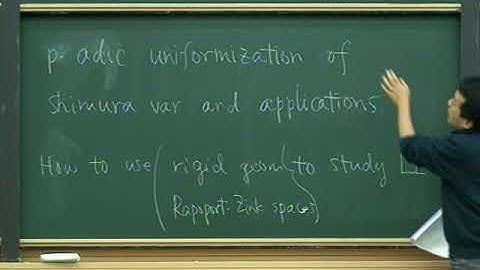 p-adic uniformization of
shimura var and applications
How to use (rigid geom) to study
Rapoport-Zink spaces